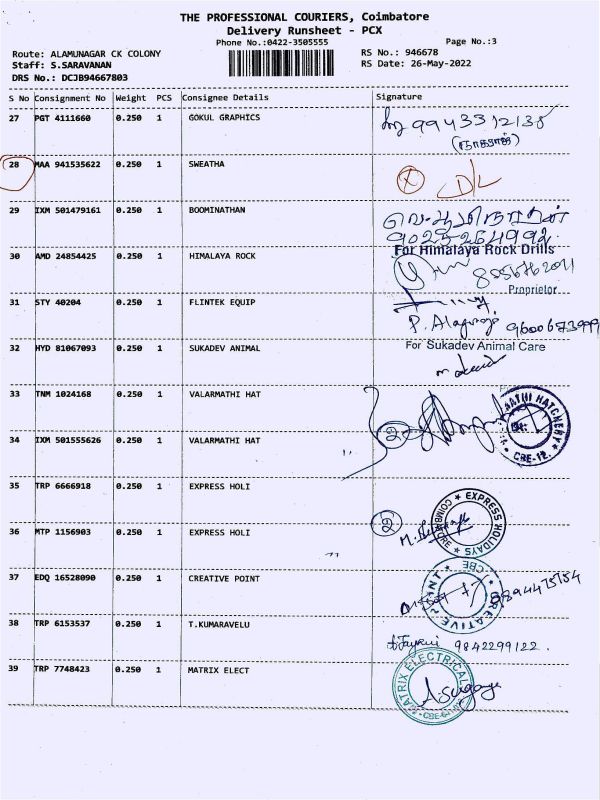 THE PROFESSIONAL COURIERS, Coimbatore
Delivery Runsheet - PCX
Phone No.:0422-3505555 Page No.:3
Route: ALAMUNAGAR CK COLONY RS No.: 946678
Staff: S.SARAVANAN RS Date: 26-May-2022
DRS No.: DCJB94667803
S No Consignment No Weight PCS Consignee Details Signature
27 PGT 4111660 0.250 1 GOKUL GRAPHICS
28 MAA 941535622 0.250 1 SWEATHA X D/L
29 IXM 501479161 0.250 1 BOOMINATHAN
For Himalaya Rock Drills
30 AMD 24854425 0.250 1 HIMALAYA ROCK
Proprietor
31 STY 40204 0.250 1 FLINTEK EQUIP
P. Alaguraj
32 HYD 81067093 0.250 1 SUKADEV ANIMAL For Sukadev Animal Care
33 TNM 1024168 0.250 1 VALARMATHI HAT
34 IXM 501555626 0.250 1 VALARMATHI HAT CBE-12.
35 TRP 6666918 0.250 1 EXPRESS HOLI EXPRESS HOLIDAYS
36 MTP 1156903 0.250 1 EXPRESS HOLI
37 EDQ 16528090 0.250 1 CREATIVE POINT CREATIVE POINT CBE
38 TRP 6153537 0.250 1 T.KUMARAVELU 9842299122.
39 TRP 7748423 0.250 1 MATRIX ELECT MATRIX ELECTRICAL